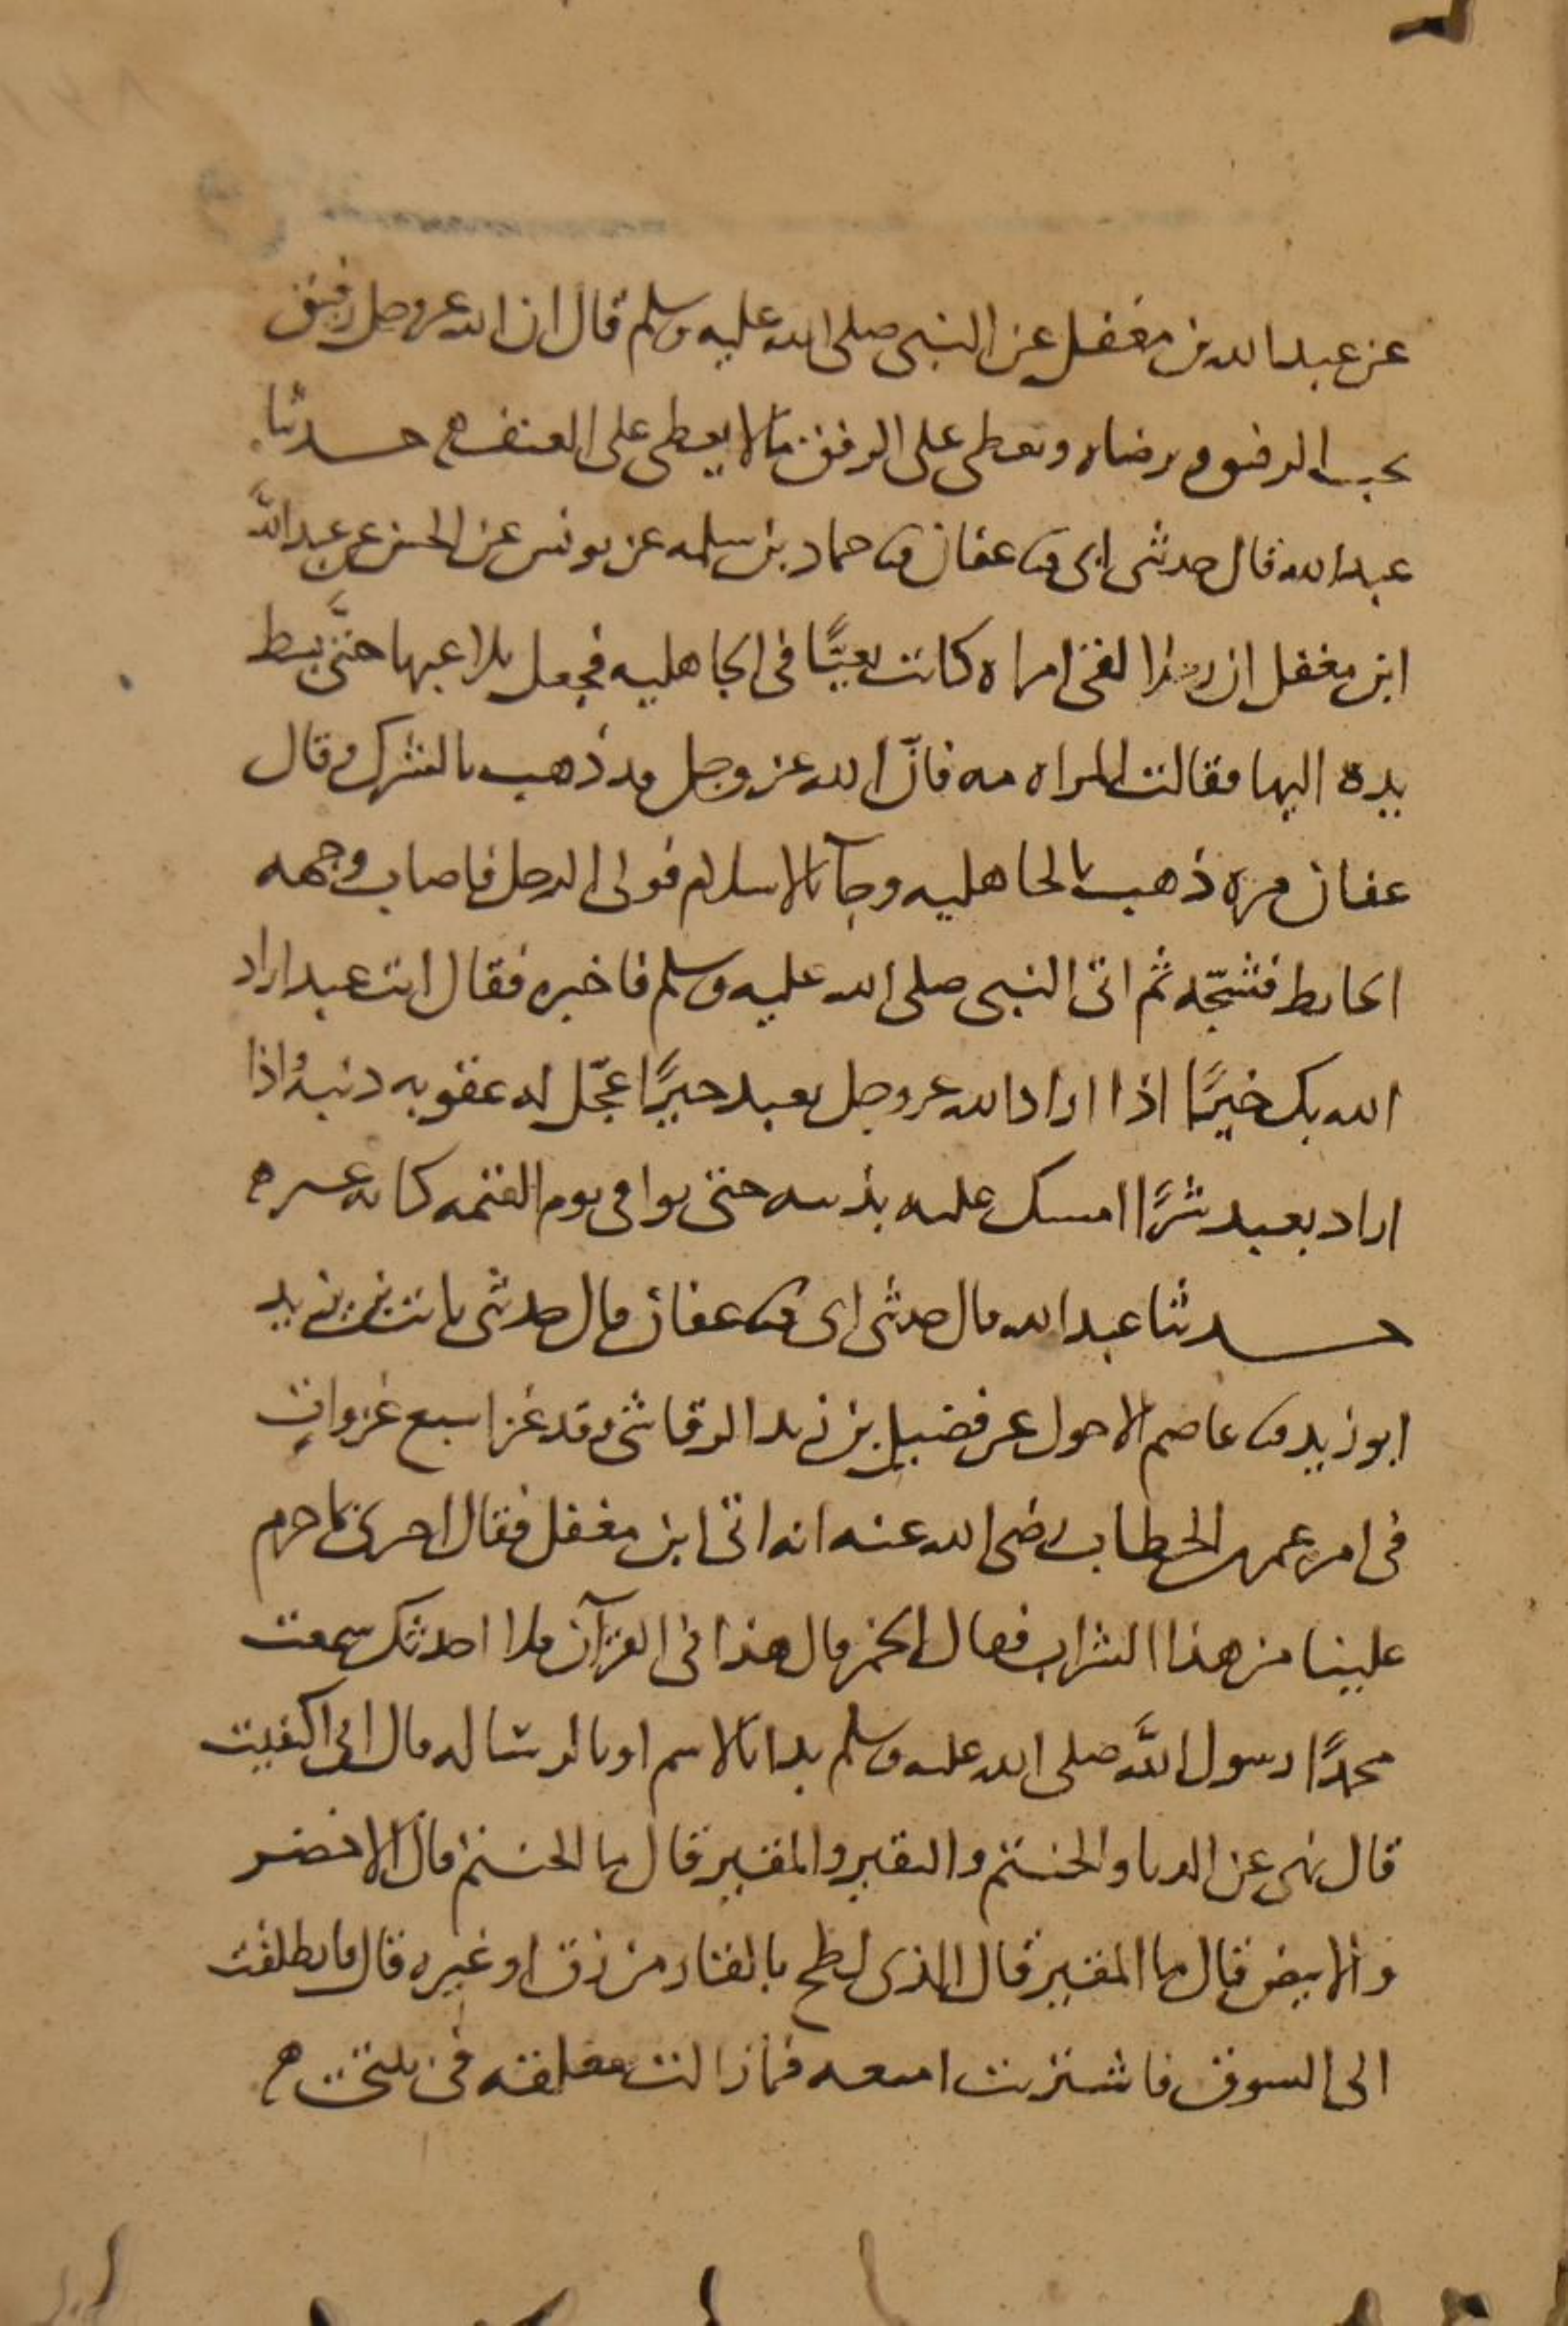 عن عبد الله بن مغفل عن النبي صلى الله عليه وسلم قال ان الله عز وجل رفيق
يحب الرفق ويرضاه ويعطي على الرفق ما لا يعطي على العنف ه حدثنا
عبد الله قال حدثني ابي ثنا عفان ثنا حماد بن سلمه عن يونس عن الحسن عن عبد اللَّه
ابن مغفل ان رجلا لقى امراه كانت بغيًّا في الجاهليه فجعل يلاعبها حتَّى بسط
يده اليها فقالت المراه مه فانّ الله عز وجل قد ذهب بالشرك وقال
عفان مره ذهب بالجاهليه وجآ بالاسلام فولى الرجل فاصاب وجهه
الحايط فشجّه ثم اتى النبي صلى الله عليه وسلم فاخبره فقال انت عبد اراد
الله بك خيرًا اذا اراد الله عز وجل بعبد خيرًا عجّل له عقوبه ذنبه واذا
اراد بعبد شرًّا امسك عليه بذنبه حتى يوافى يوم القيمه كانه عير ه
حدثنا عبد الله قال حدثني ابي ثنا عفان قال حدثني ثابت بن يزيد
ابو زيد ثنا عاصم الاحول عن فضيل بن زيد الرقاشي وقد غزا سبع غزواتٍ
في امره عمر بن الخطاب رضي الله عنه انه اتى ابن مغفل فقال اخبرني بما حرم
علينا من هذا الشراب فقال الخمر قال هذا في القرآن فلا احدثك سمعت
محمدًا رسول اللَّه صلى الله عليه وسلم بدا بالاسم او بالرساله قال اني اكتفيت
قال نهى عن الدبا والحنتم والنقير والمقير قال ما الحنتم قال الاخضر
والابيض قال ما المقير قال الذي لطخ بالقار من زق او غيره قال فانطلقت
الى السوق فاشتريت افيقه فما زالت معلقه في بيتي ه